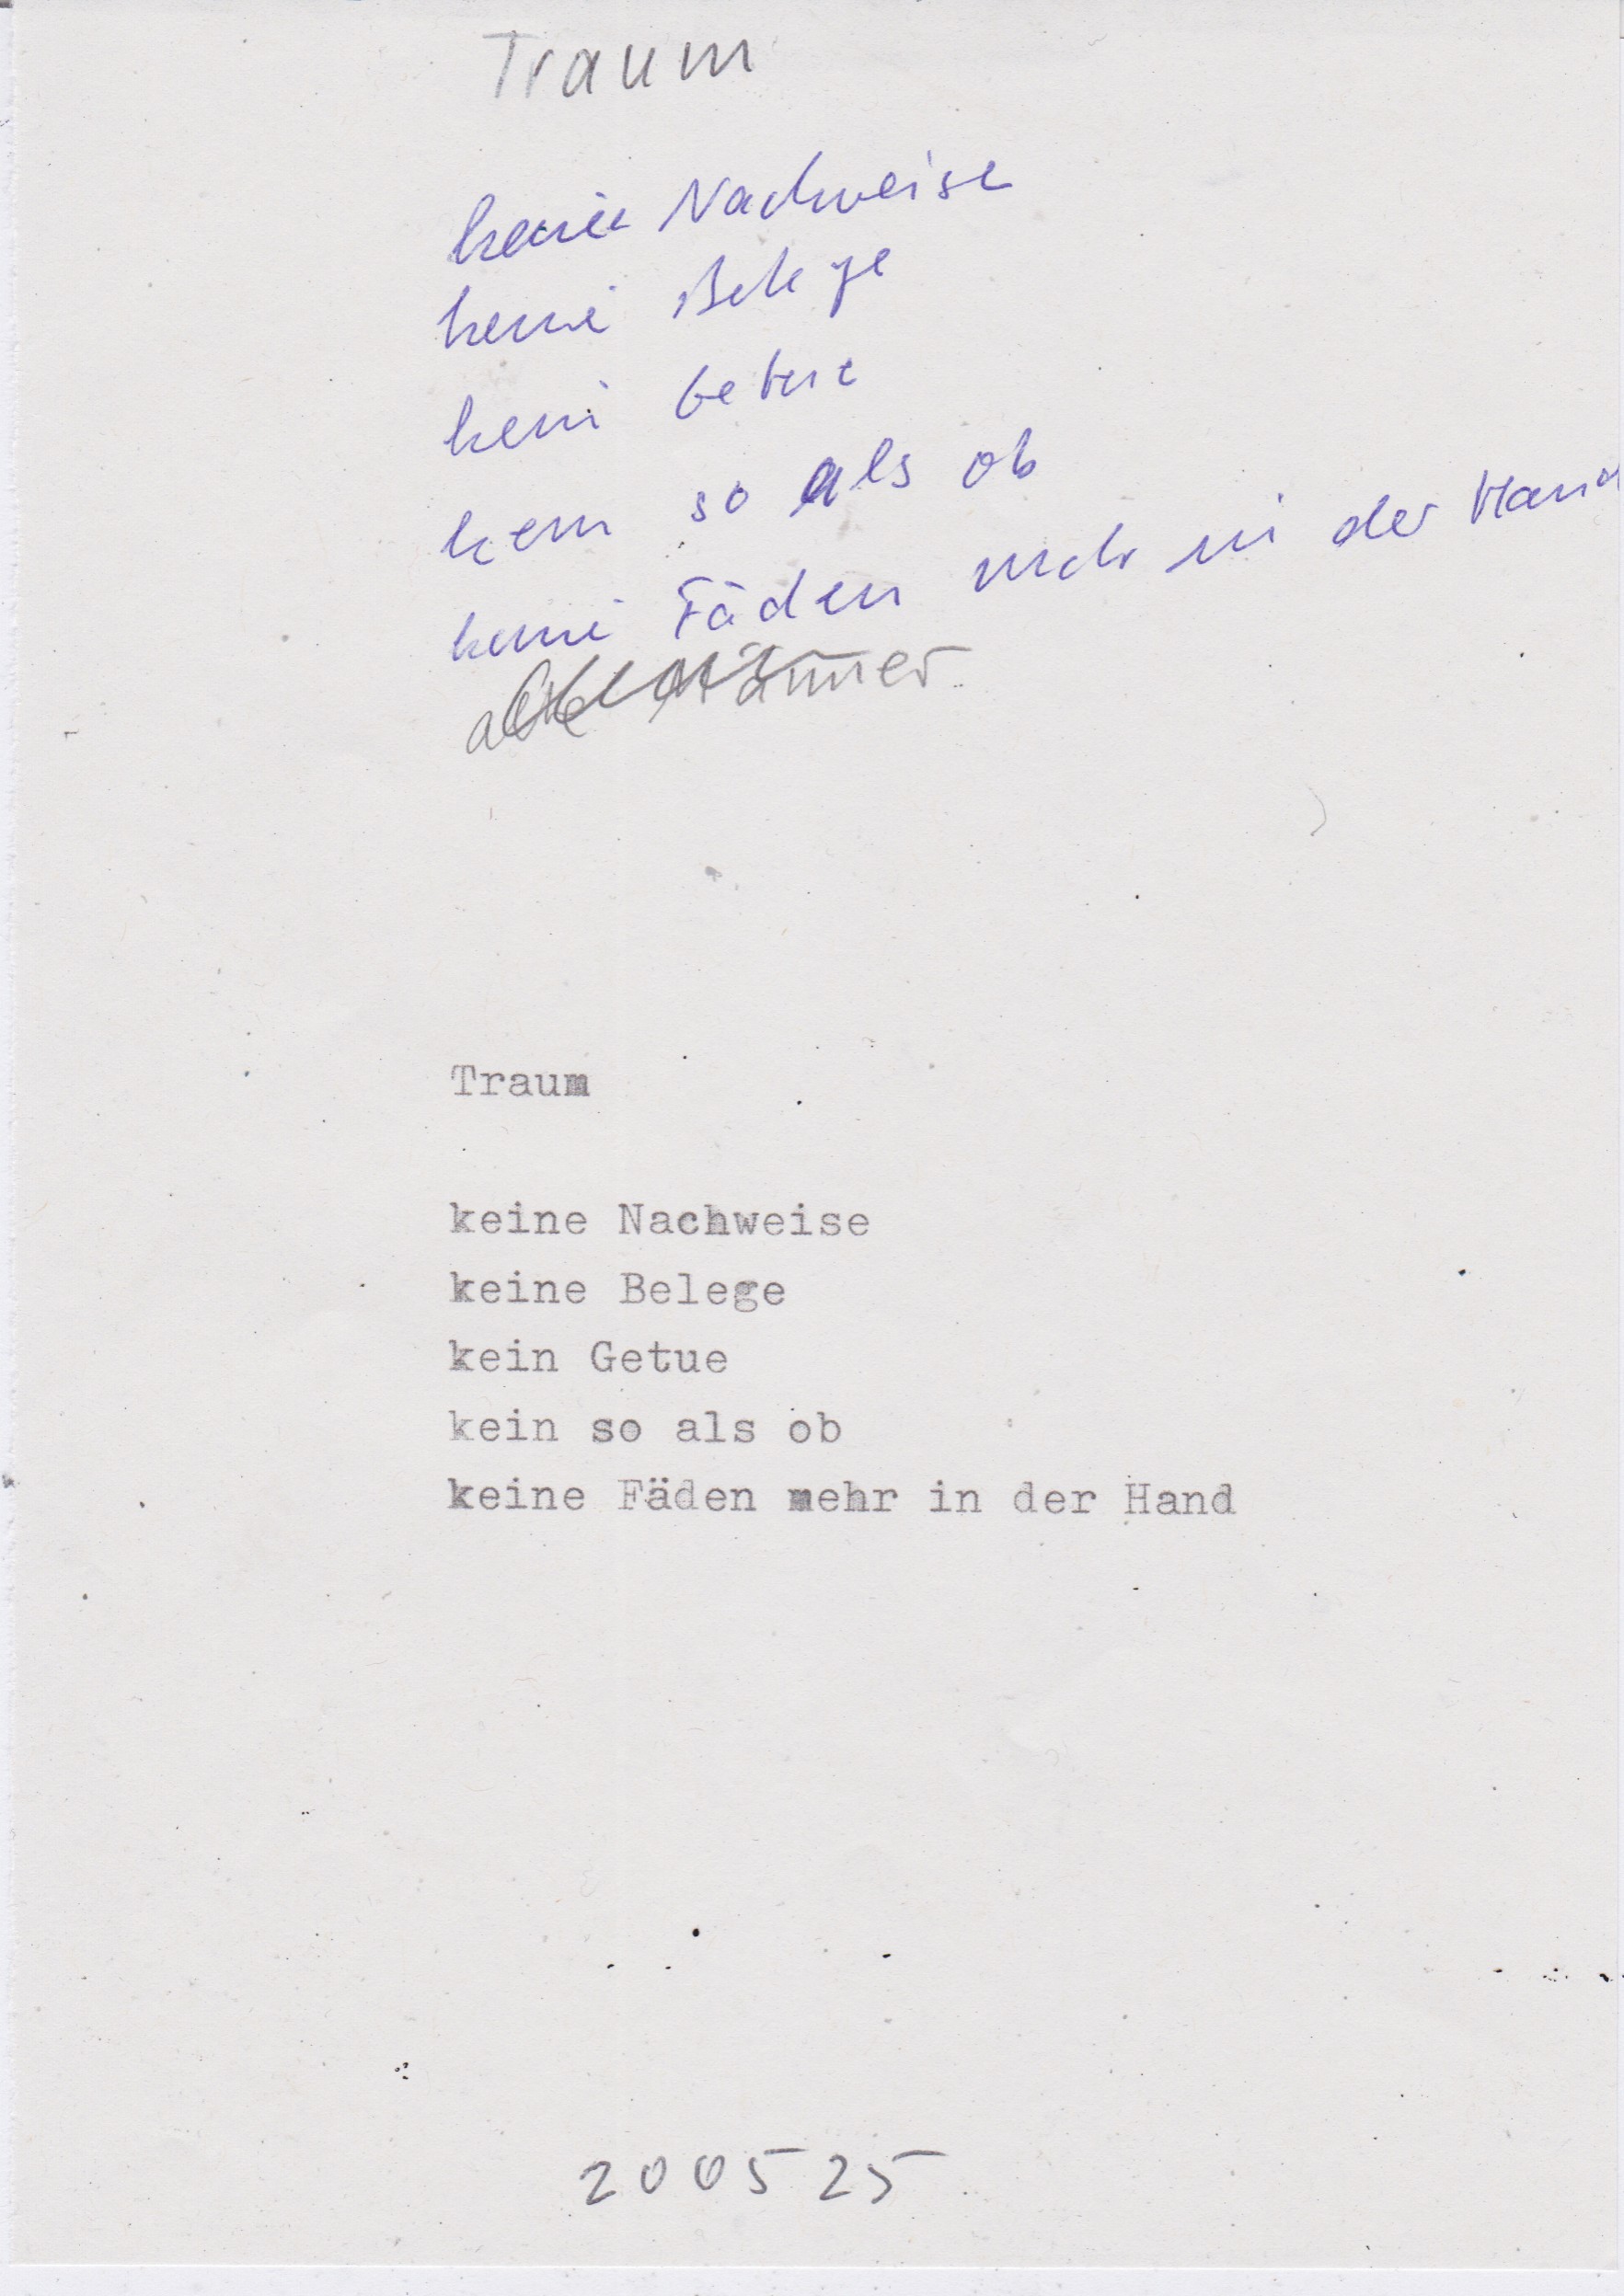 Traum
keine Nachweise
keine Belege
kein Getue
kein so als ob
keine Fäden mehr in der Hand
alte Männer
Traum
keine Nachweise
keine Belege
kein Getue
kein so als ob
keine Fäden mehr in der Hand
200525